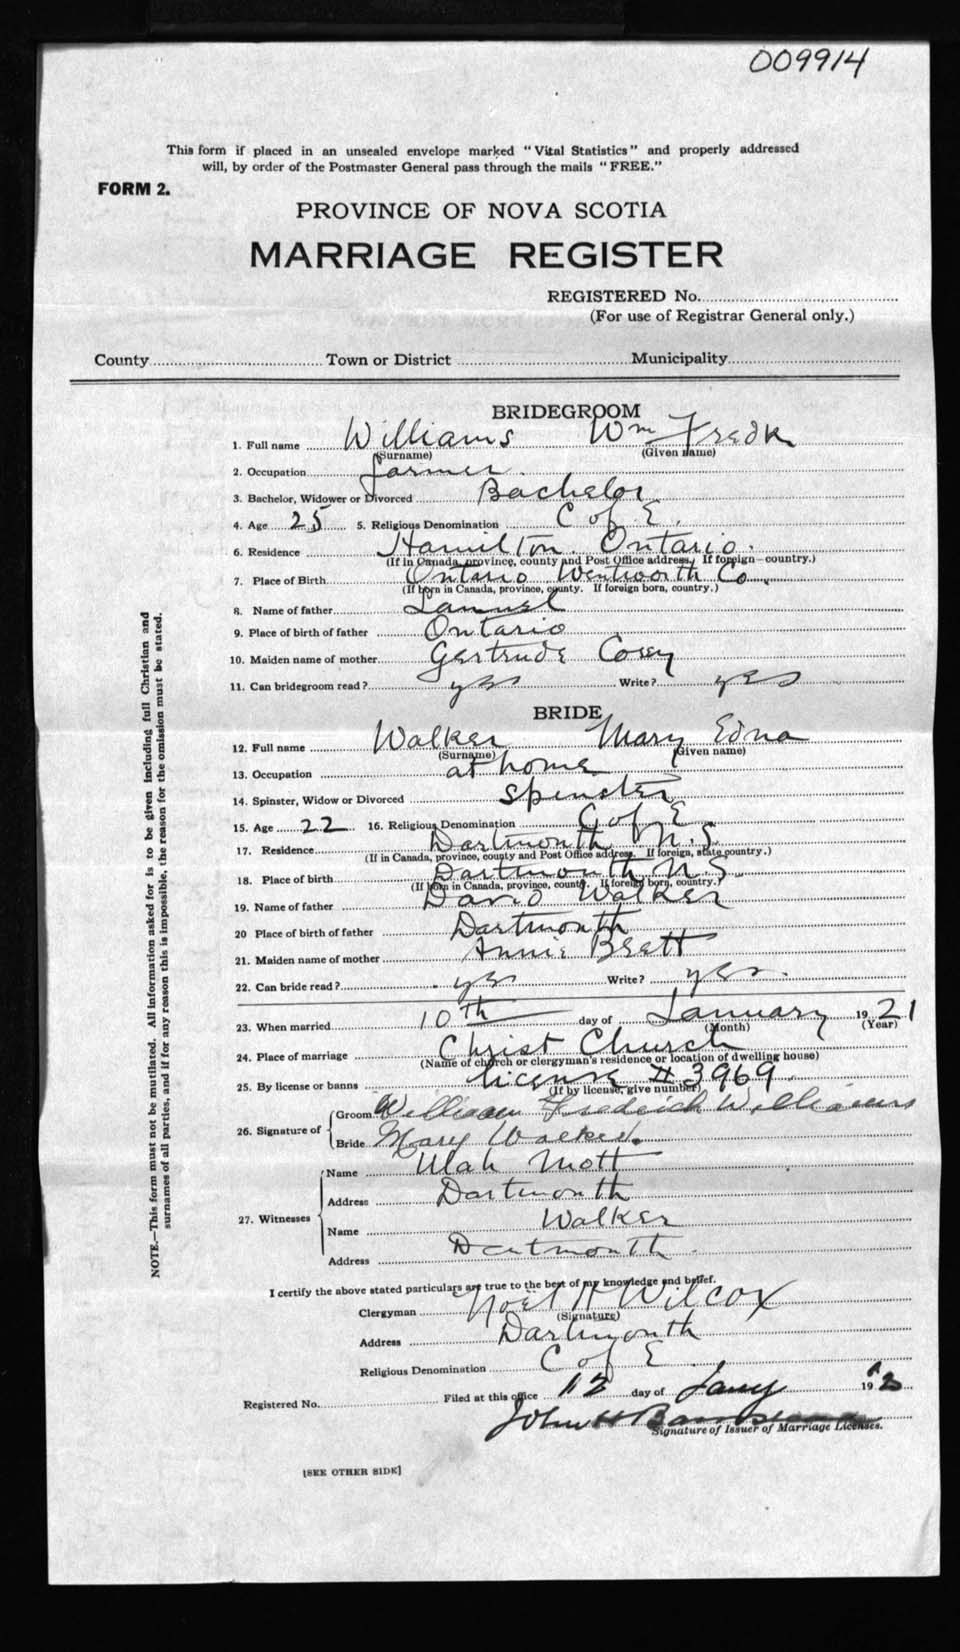 009914
This form if placed in an unsealed envelope marked "Vital Statistics" and properly addressed
will, by order of the Postmaster General pass through the mails "FREE."
FORM 2.
PROVINCE OF NOVA SCOTIA
MARRIAGE REGISTER
REGISTERED No.
(For use of Registrar General only.)
County Town or District Municipality
BRIDEGROOM
1. Full name Williams Wm Fredk
(Surname) (Given name)
2. Occupation farmer
3. Bachelor, Widower or Divorced Bachelor
4. Age 25 5. Religious Denomination C of E.
6. Residence Hamilton Ontario.
(If in Canada, province, county and Post Office address. If foreign—country.)
7. Place of Birth Ontario Wentworth Co.
(If born in Canada, province, county. If foreign born, country.)
8. Name of father Samuel
9. Place of birth of father Ontario
10. Maiden name of mother Gertrude Corey
11. Can bridegroom read? yes Write? yes
BRIDE
12. Full name Walker Mary Edna
(Surname) (Given name)
13. Occupation at home
14. Spinster, Widow or Divorced Spinster
15. Age 22 16. Religious Denomination C of E
17. Residence Dartmouth N.S.
(If in Canada, province, county and Post Office address. If foreign, state, country.)
18. Place of birth Dartmouth N.S.
(If born in Canada, province, county. If foreign born, country.)
19. Name of father David Walker
20 Place of birth of father Dartmouth
21. Maiden name of mother Annie Brett
22. Can bride read? yes Write? yes.
23. When married 10th day of January 1921
(Month) (Year)
24. Place of marriage Christ Church
(Name of church or clergyman's residence or location of dwelling house)
25. By license or banns license # 3969
(If by license, give number)
26. Signature of Groom William Fredrick Williams
Bride Mary Walker.
27. Witnesses Name Ulah Mott
Address Dartmouth
Name Walker
Address Dartmouth.
I certify the above stated particulars are true to the best of my knowledge and belief.
Clergyman Noël H Wilcox
(Signature)
Address Dartmouth
Religious Denomination C of E
Registered No. Filed at this office 12 day of Jany 19
John H
Signature of Issuer of Marriage Licenses.
[SEE OTHER SIDE]
NOTE.—This form must not be mutilated. All information asked for is to be given including full Christian and
surnames of all parties, and if for any reason this is impossible, the reason for the omission must be stated.